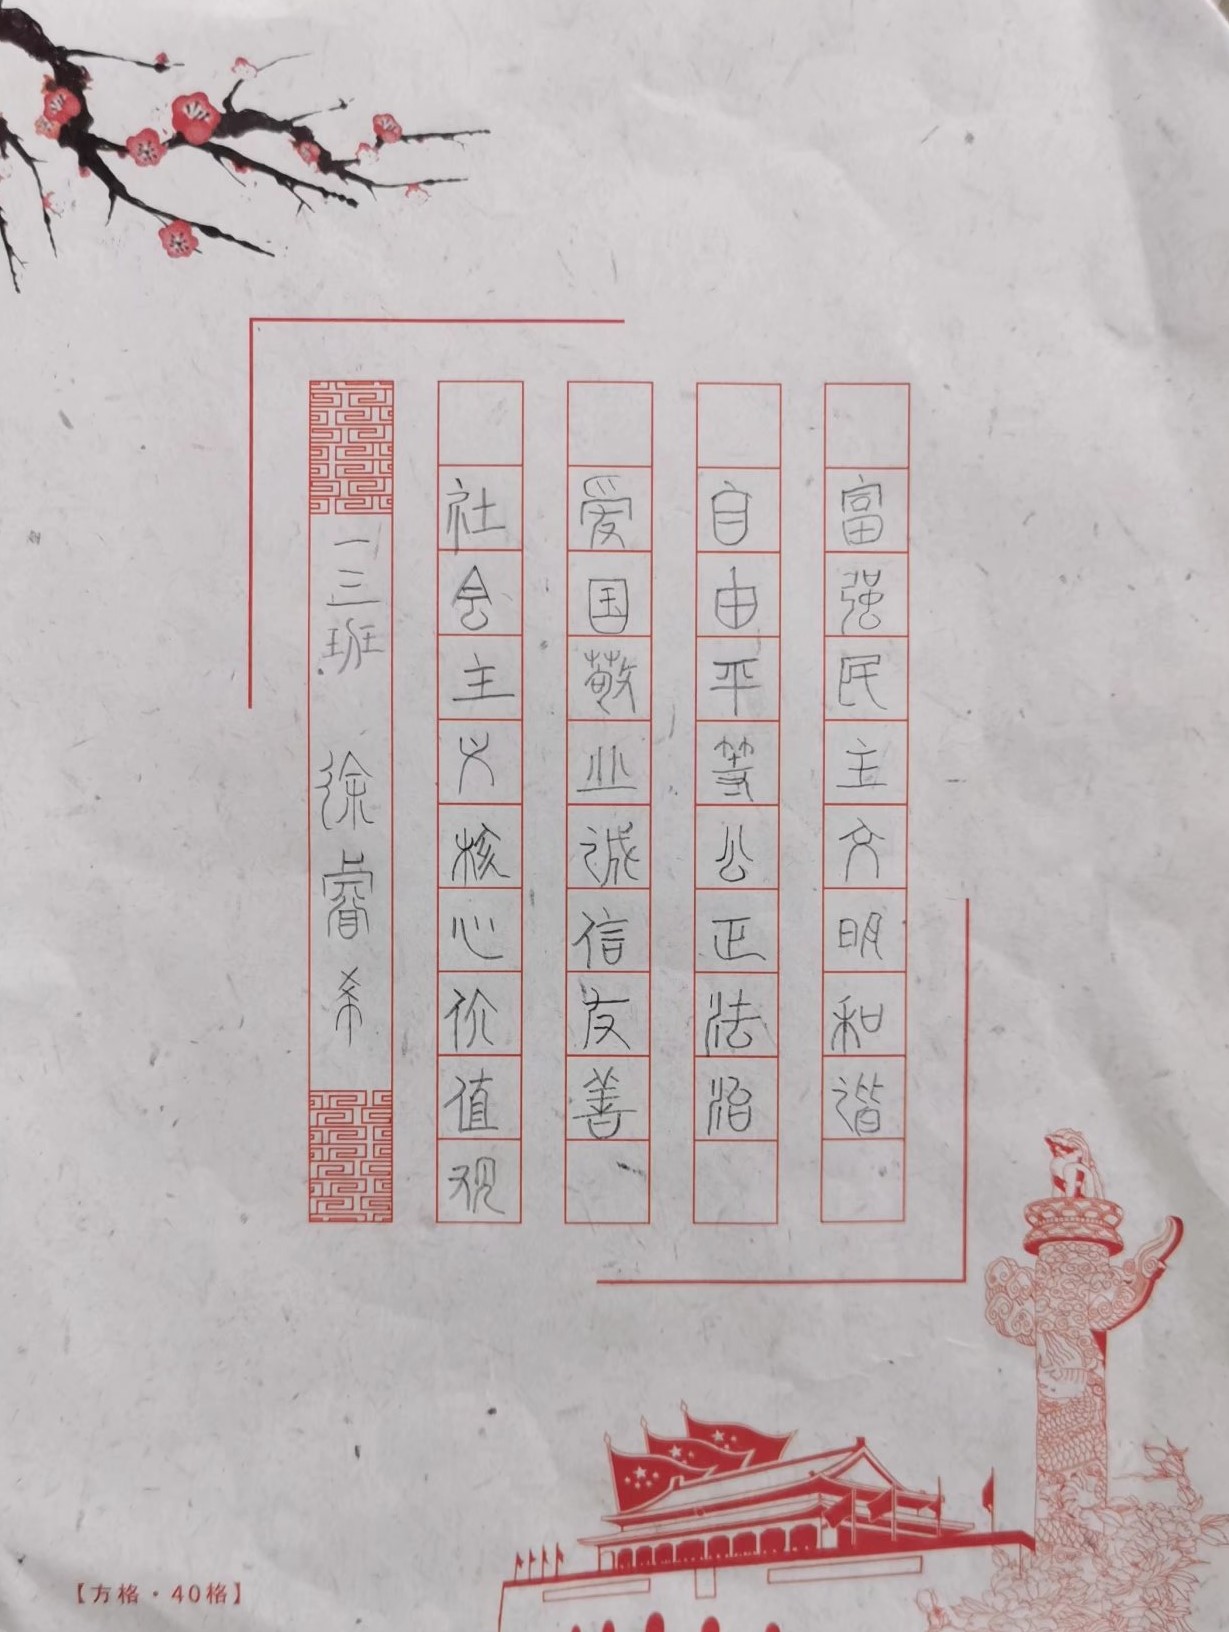 富强民主文明和谐
自由平等公正法治
爱国敬业诚信友善
社会主义核心价值观
一三班 徐睿希
【方格·40格】